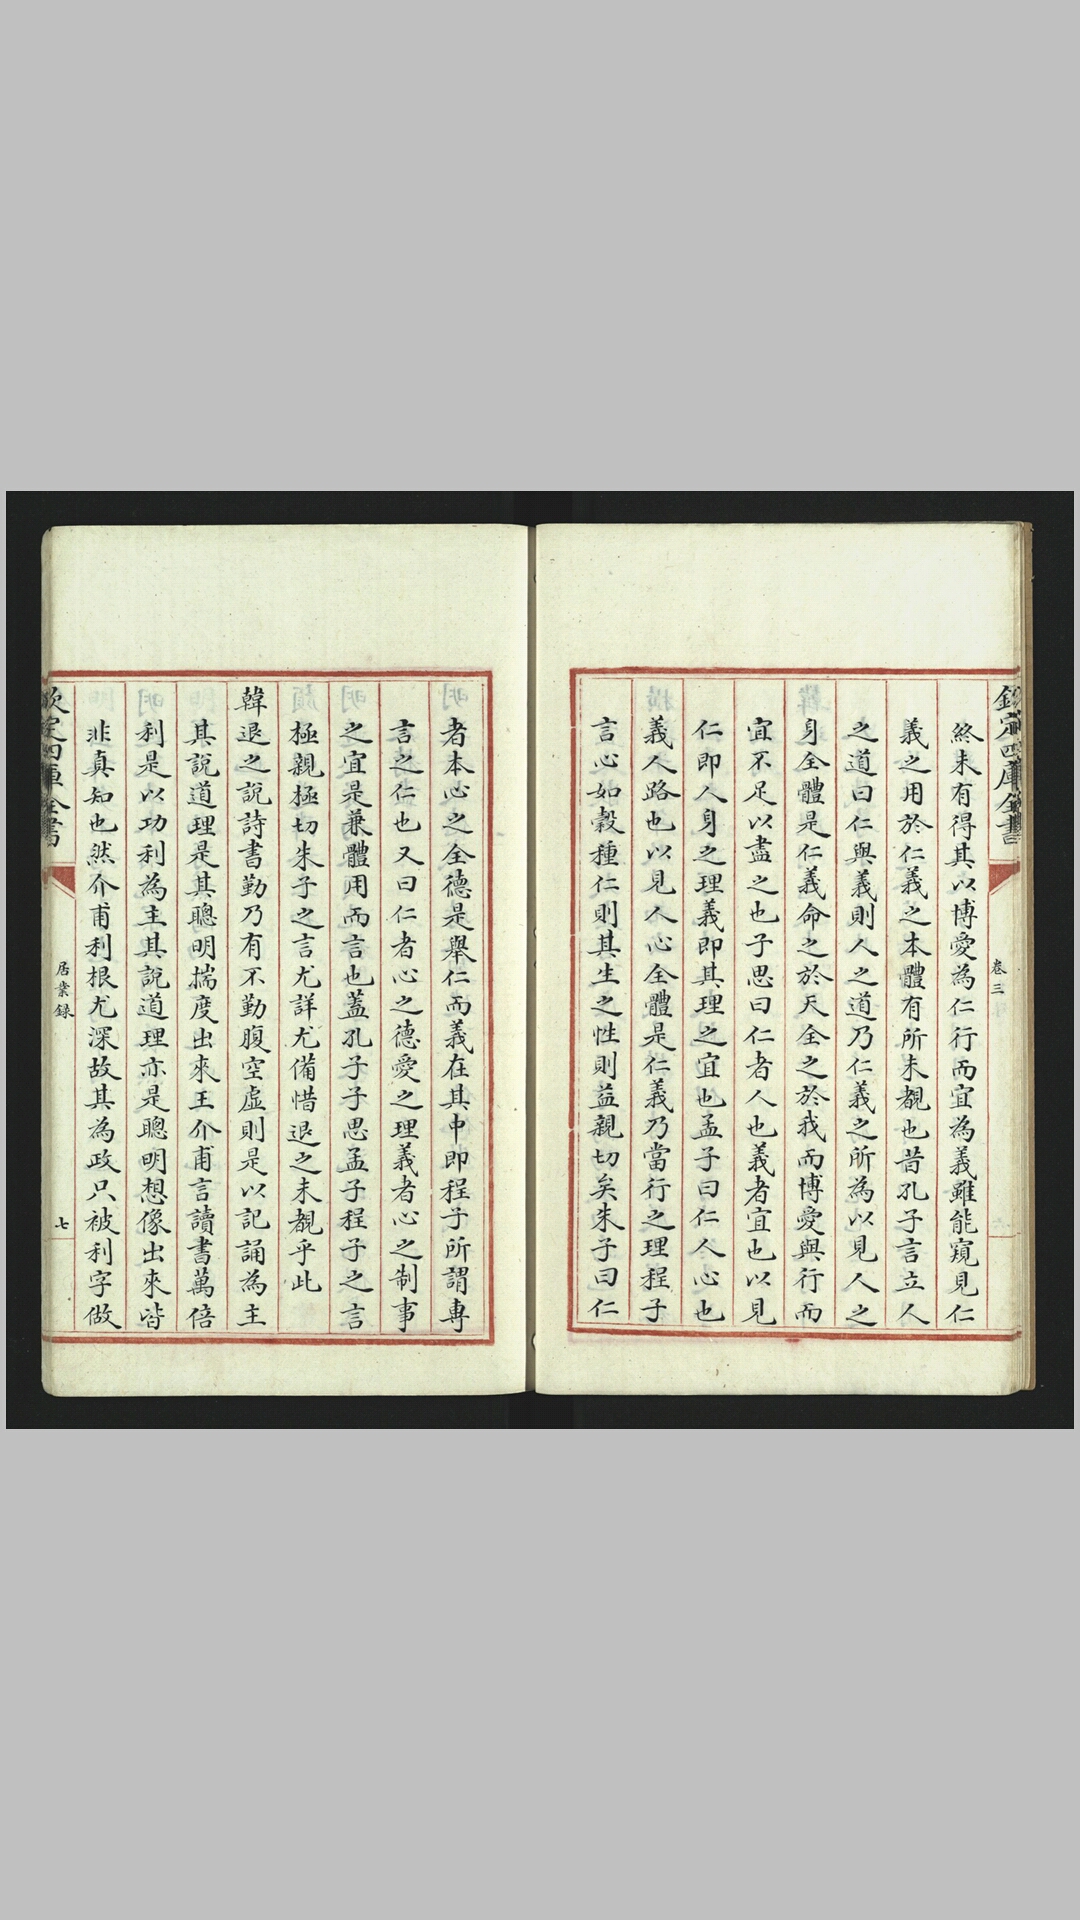 欽定四庫全書
卷三
終未有得其以博愛為仁行而宜為義雖能窺見仁
義之用於仁義之本體有所未覩也昔孔子言立人
之道曰仁與義則人之道乃仁義之所為以見人之
身全體是仁義命之於天全之於我而博愛與行而
宜不足以盡之也子思曰仁者人也義者宜也以見
仁即人身之理義即其理之宜也孟子曰仁人心也
義人路也以見人心全體是仁義乃當行之理程子
言心如穀種仁則其生之性則益親切矣朱子曰仁
者本心之全德是舉仁而義在其中即程子所謂專
言之仁也又曰仁者心之德愛之理義者心之制事
之宜是兼體用而言也蓋孔子子思孟子程子之言
極親極切朱子之言尤詳尤備惜退之未覩乎此
韓退之說詩書勤乃有不勤腹空虛則是以記誦為主
其說道理是其聰明揣度出來王介甫言讀書萬倍
利是以功利為主其說道理亦是聰明想像出來皆
非真知也然介甫利根尤深故其為政只被利字做
欽定四庫全書
居業錄
七